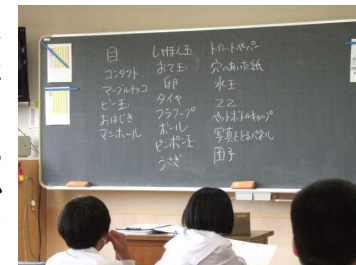 目
コンタクト
マーブルチョコ
ビー玉
おはじき
マンホール
しゃぼん玉
おて玉
卵
タイヤ
フラフープ
ボール
ピンポン玉
うさぎ
トイレットペーパー
穴のあいた紙
水玉
ペットボトルキャップ
団子